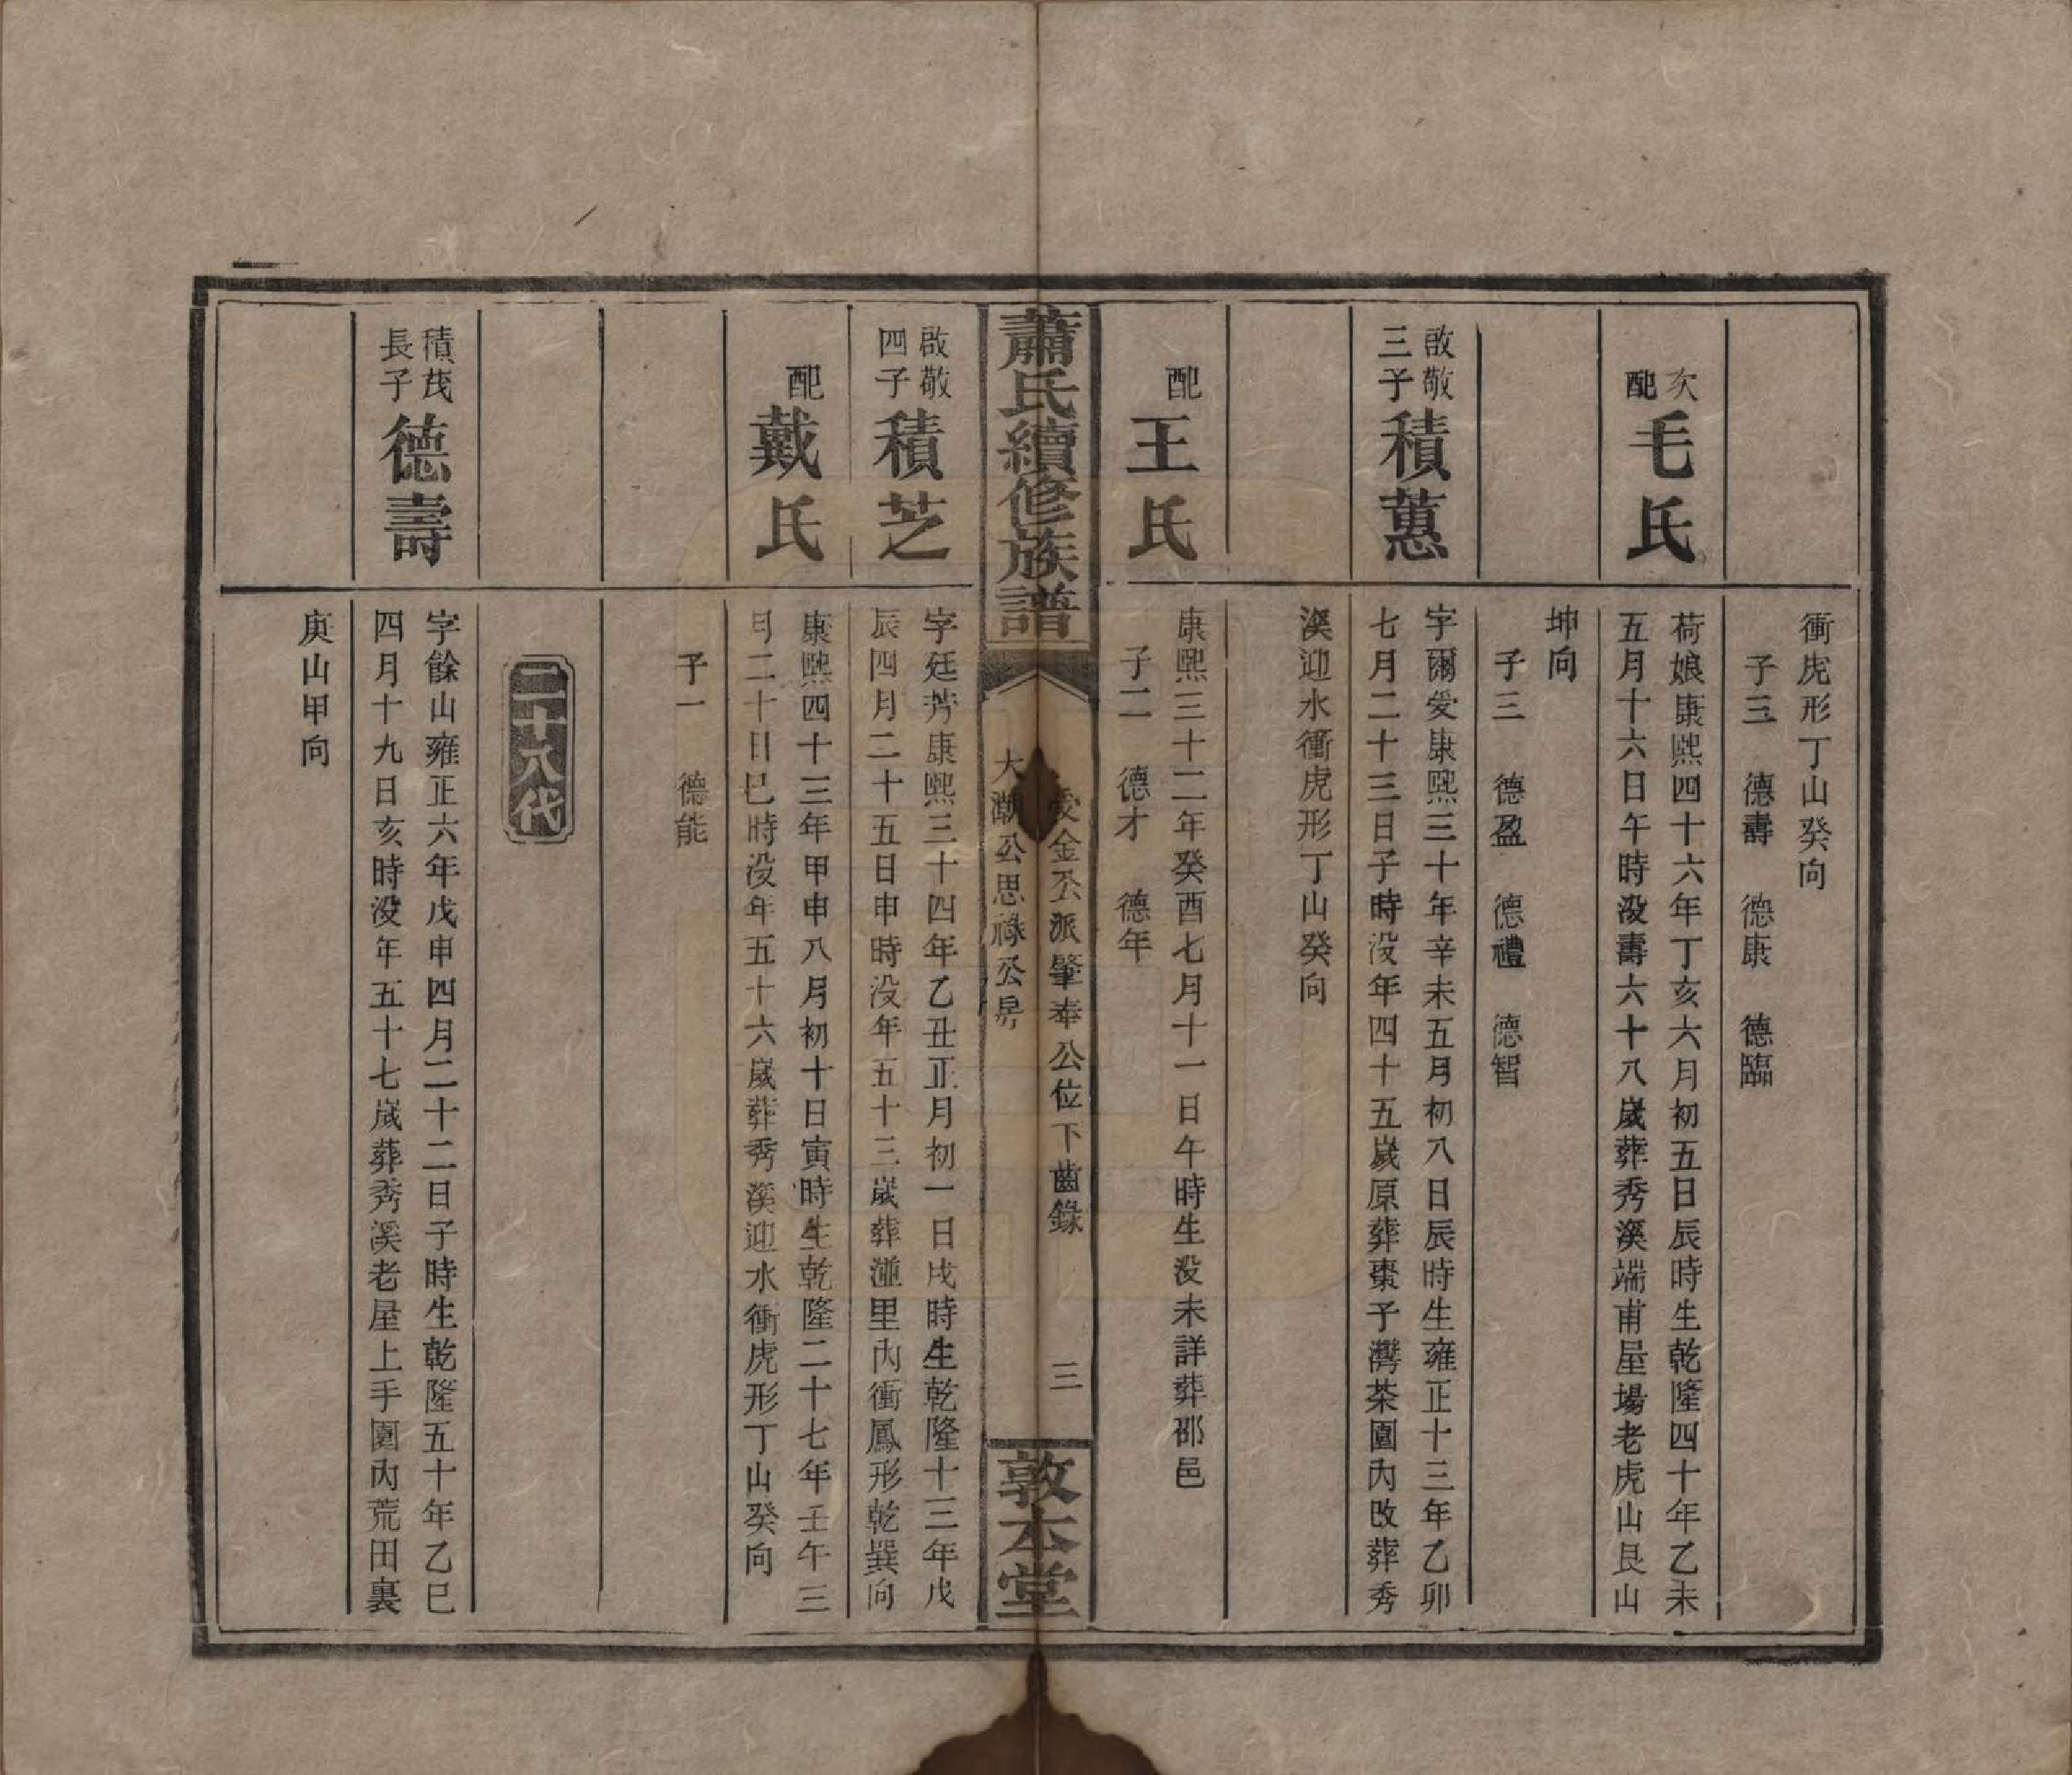 衝虎形丁山癸向
子三　德壽　德康　德臨
次配
毛氏
荷娘康熙四十六年丁亥六月初五日辰時生乾隆四十年乙未
五月十六日午時没壽六十八歲葬秀溪端甫屋場老虎山艮山
坤向
子三　德盈　德禮　德智
啟敬
三子
積蕙
字爾愛康熙三十年辛未五月初八日辰時生雍正十三年乙卯
七月二十三日子時没年四十五歲原葬棗子灣茶園內改葬秀
溪迎水衝虎形丁山癸向
配
王氏
康熙三十二年癸酉七月十一日午時生没未詳葬邵邑
子二　德才　德年
蕭氏續修族譜
受金公派肇奉公位下齒錄
大潮公思祿公房
三
敦本堂
啟敬
四子
積芝
字廷芳康熙三十四年乙丑正月初一日戌時生乾隆十三年戊
辰四月二十五日申時没年五十三歲葬湴里內衝鳳形乾巽向
配
戴氏
康熙四十三年甲申八月初十日寅時生乾隆二十七年壬午三
月二十日巳時没年五十六歲葬秀溪迎水衝虎形丁山癸向
子一　德能
二十八代
積茂
長子
德壽
字餘山雍正六年戊申四月二十二日子時生乾隆五十年乙巳
四月十九日亥時没年五十七歲葬秀溪老屋上手園內荒田裏
庚山甲向